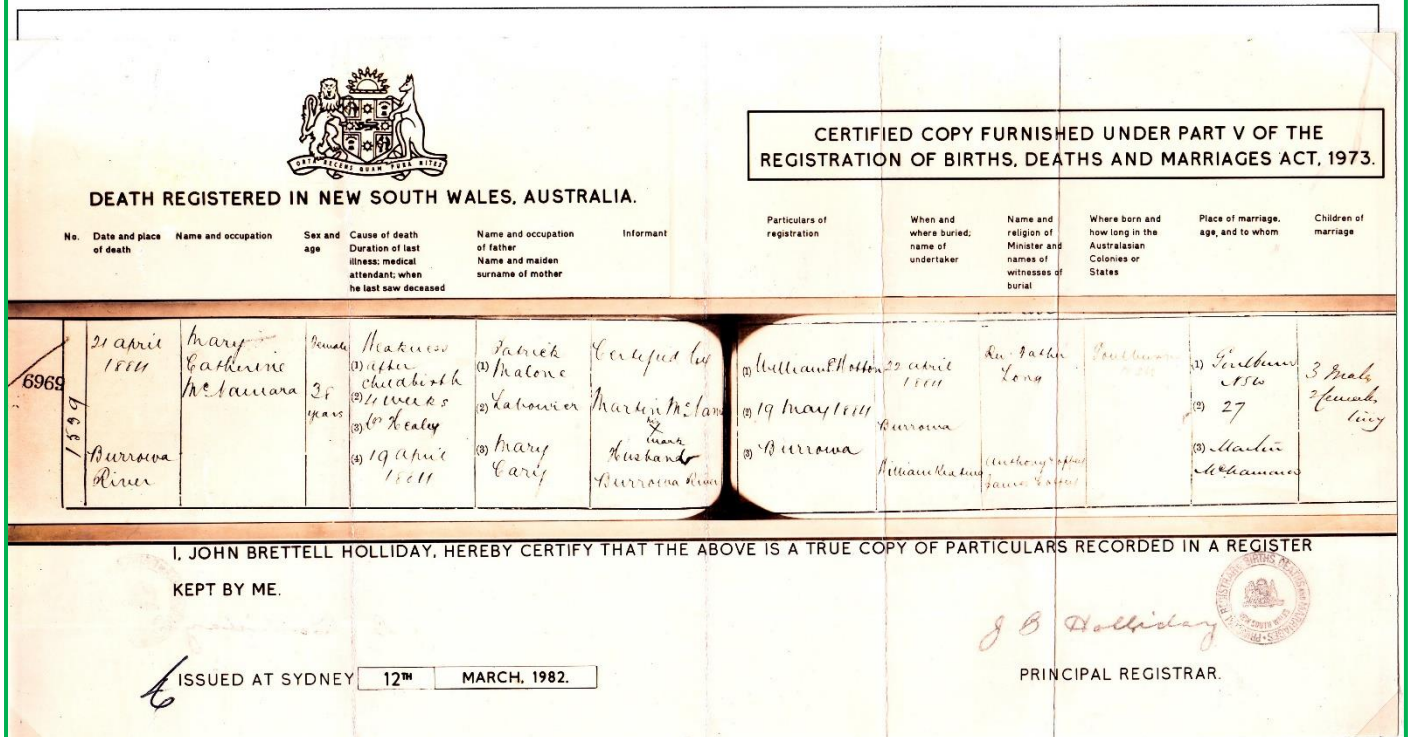 ORTA RECENS QUAM PURA NITES
DEATH REGISTERED IN NEW SOUTH WALES, AUSTRALIA.
CERTIFIED COPY FURNISHED UNDER PART V OF THE
REGISTRATION OF BIRTHS, DEATHS AND MARRIAGES ACT, 1973.
No.
Date and place
of death
Name and occupation
Sex and
age
Cause of death
Duration of last
illness; medical
attendant; when
he last saw deceased
Name and occupation
of father
Name and maiden
surname of mother
Informant
Particulars of
registration
When and
where buried;
name of
undertaker
Name and
religion of
Minister and
names of
witnesses of
burial
Where born and
how long in the
Australasian
Colonies or
States
Place of marriage,
age, and to whom
Children of
marriage
6969
1599
21 april
1884
Burrowa
River
Mary
Catherine
McNamara
Female
38
years
Weakness
(1) after
childbirth
(2) 4 weeks
(3) Dr Healey
(4) 19 april
1884
Patrick
(1) Malone
(2) Labourer
(3) Mary
Certified by
Martin McNam
his
X
mark
Husband
Burrowa River
(1) William
(2) 19 May 1884
(3) Burrowa
22 april
1884
Burrowa
William
Rev Father
Long
Anthony
James
Goulburn
NSW
(1) Goulburn
NSW
(2) 27
(3) Martin
McNamara
3 Males
2 females
living
I, JOHN BRETTELL HOLLIDAY, HEREBY CERTIFY THAT THE ABOVE IS A TRUE COPY OF PARTICULARS RECORDED IN A REGISTER
KEPT BY ME.
J B Holliday
ISSUED AT SYDNEY 12TH MARCH, 1982.
PRINCIPAL REGISTRAR.